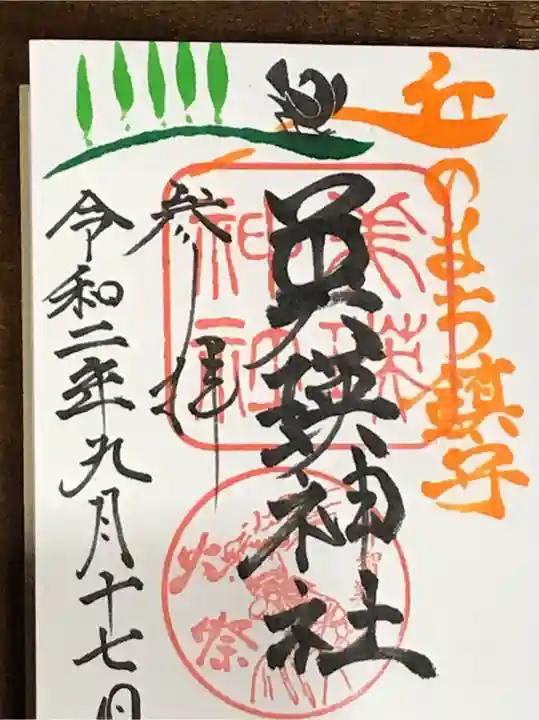 丘のまち鎮守
美瑛神社
美瑛神社
参拝
火祭
令和二年九月十七日